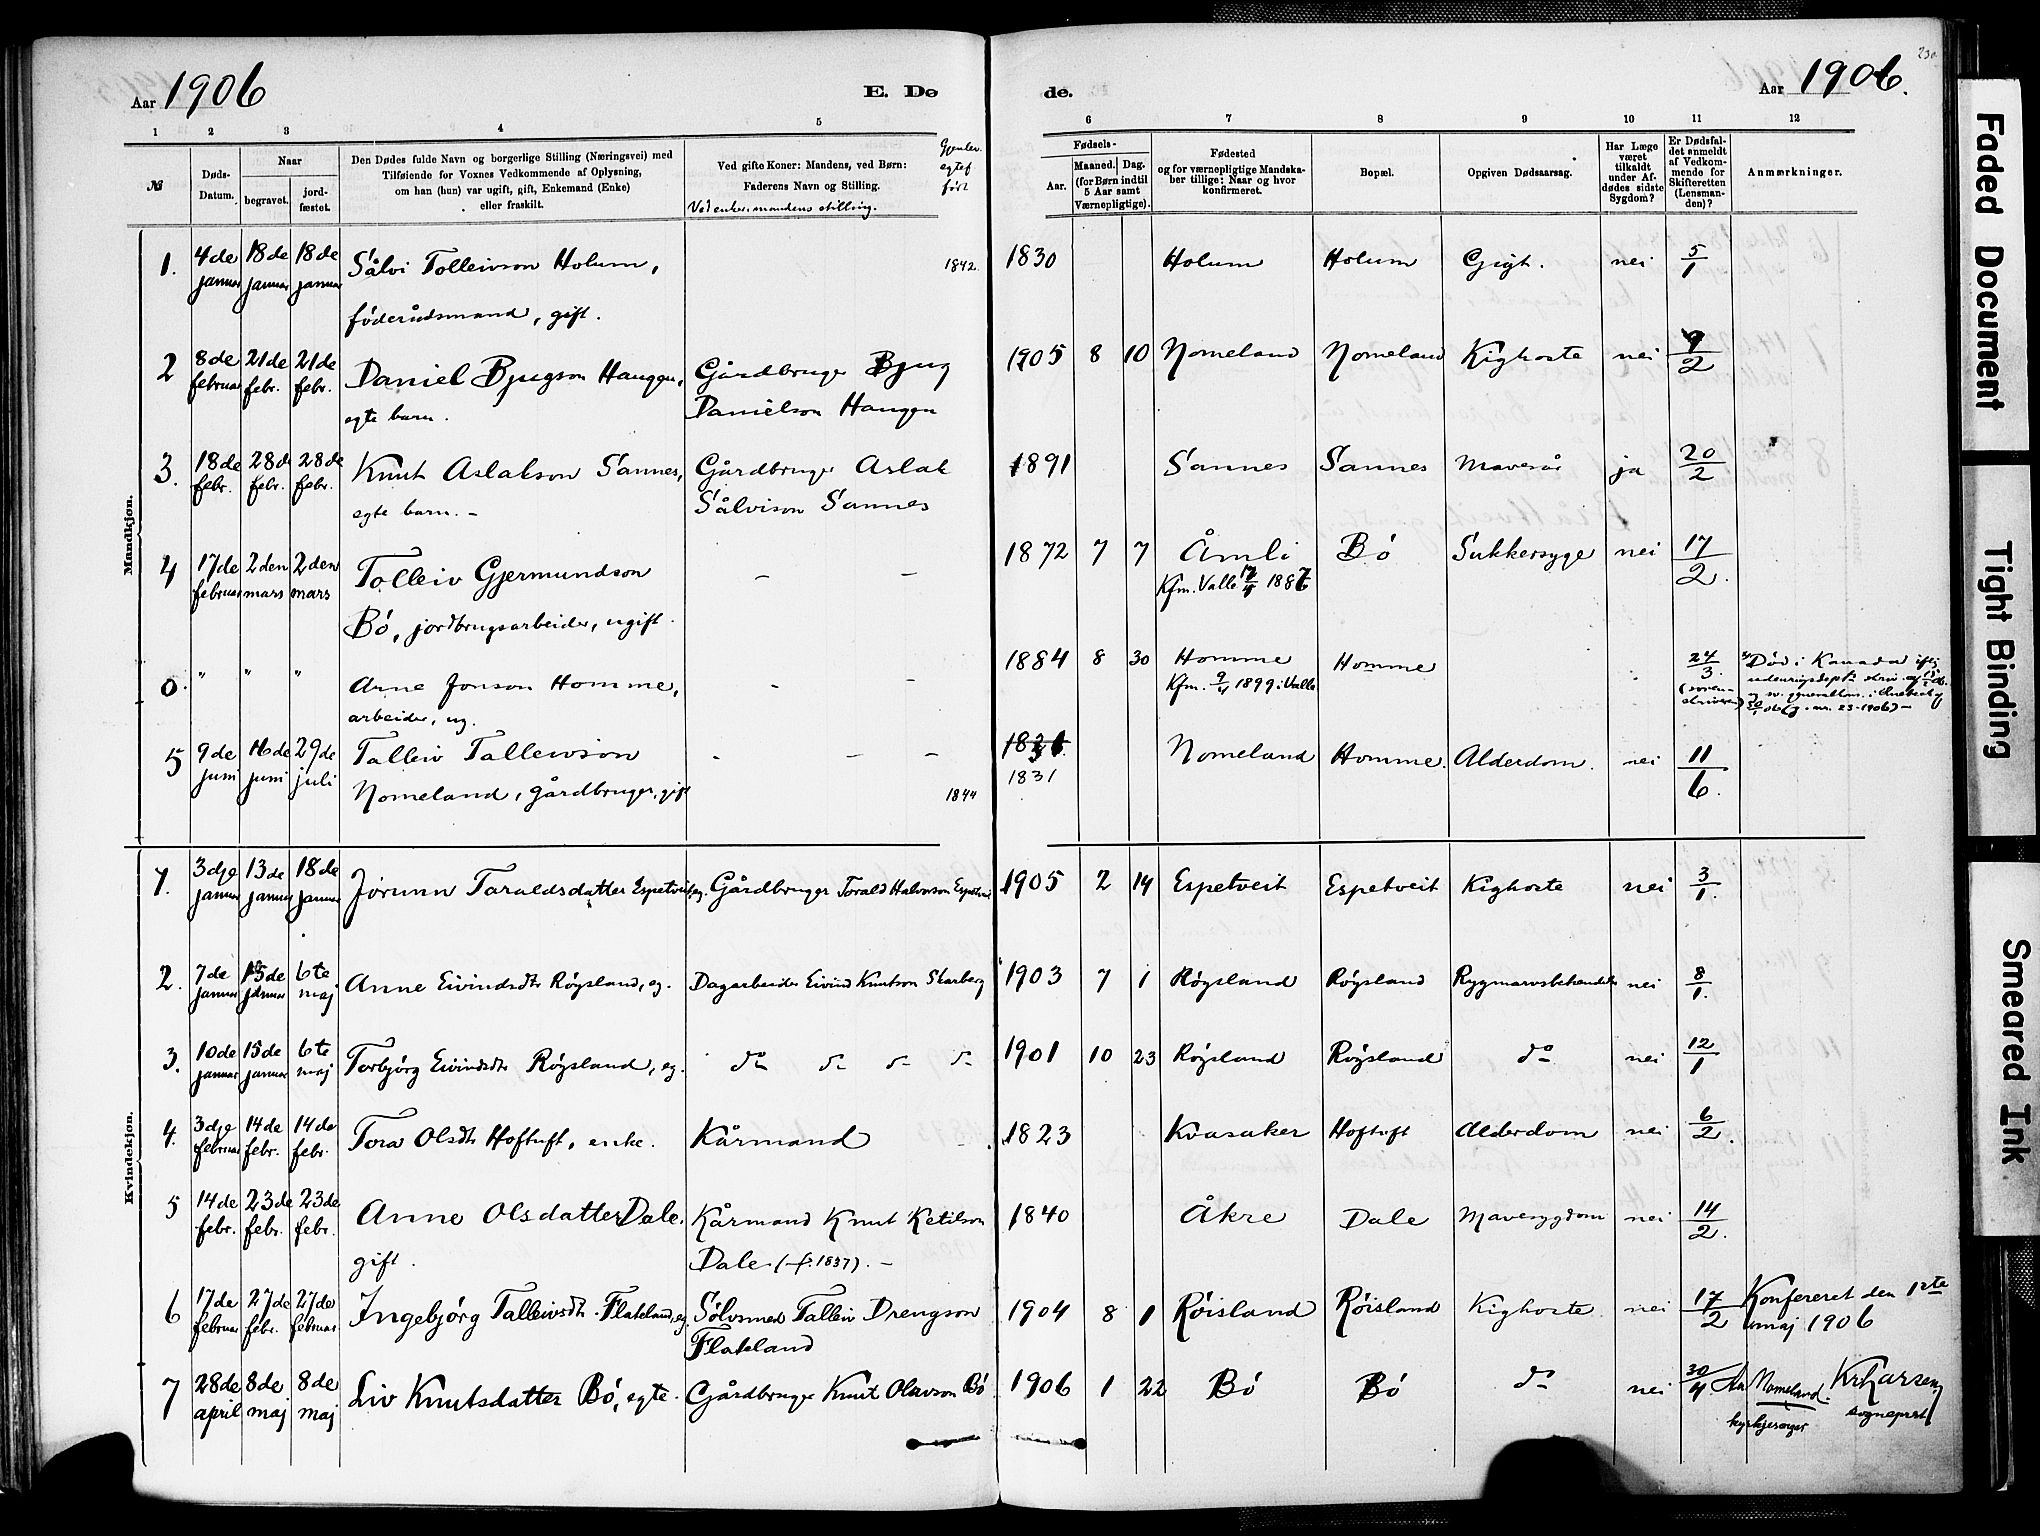 230
Aar 1906
E. Dø
de.
Aar 1906.
1 2 3 4 5 6 7 8 9 10 11 12
№
Døds-Datum.
Naar
begravet.
jord-fæstet.
Den Dødes fulde Navn og borgerlige Stilling (Næringsvei) med
Tilføiende for Voxnes Vedkommende af Oplysning,
om han (hun) var ugift, gift, Enkemand (Enke)
eller fraskilt.
Ved gifte Koner: Mandens, ved Børn:
Faderens Navn og Stilling.
Ved enker: mandens stilling.
Gjenlev. egtef født
Fødsels-
Aar.
Maaned. Dag.
(for Børn indtil
5 Aar samt
Værnepligtige).
Fødested
og for værnepligtige Mandska-
ber tillige: Naar og hvor
konfirmeret.
Bopæl.
Opgiven Dødsaarsag.
Har Læge
været
tilkaldt
under Af-
dødes sidste
Sygdom?
Er Dødsfal-
det anmeldt
af Vedkom-
mende for
Skifteretten
(Lensman-
den)?
Anmærkninger.
Mandkjøn.
1. 4de januar 18de januar 18de januar Sålvi Tolleivson Holum, 1842. 1830 Holum Holum Gigt. nei 5/1
føderådsmand, gift.
2 8de februar 21de febr. 21de febr. Daniel Bjugson Haugen, Gårdbruger Bjug 1905 8 10 Nomeland Nomeland Kighoste nei 9/2
egte barn. Danielson Haugen
3. 18de febr. 28de febr. 28de febr. Knut Aslakson Sannes, Gårdbruger Aslak 1891 Sannes Sannes Mavesår ja 20/2
egte barn. – Sålvison Sannes
4 17de februar 2den mars 2den mars Tolleiv Gjermundson – – 1872 7 7 Åmli Bø Sukkersyge nei 17/2.
Bø, jordbrugsarbeider, ugift. Kfm. Valle 1887
0. " " " Arne Jonson Homme, - - 1884 8 30 Homme Homme 24/3. Død i Kanada
arbeider, ug. Kfm. 9/4 1899 i Valle (soren-skriveren) (j. nr. 23-1906) –
5 9de juni 16de juni 29de juli Talleiv Talleivson - – – 1831 Nomeland Homme. Alderdom. nei 11/6.
Nomeland, gårdbruger, gift 1844
Kvindekjøn.
1. 3dje januar 13de januar 18de januar Jørunn Taraldsdatter Espetveit, eg. Gårdbruger Torald Halvorson Espetveit 1905 2 14 Espetveit Espetveit Kighoste nei 3/1.
2. 7de januar 15de januar 6te maj Anne Eivindsdtr Røysland, eg. Dagarbeider Eivind Knutson Skarberg 1903 7 1 Røysland Røysland nei 8/1.
3. 10de januar 15de januar 6te maj Torbjørg Eivindsdtr Røysland, eg. do 1901 10 23 Røysland Røysland do nei 12/1
4. 3dje februar 14de febr. 14de febr. Tora Olsdtr Hoftuft, enke. Kårmand 1823 Kvasaker Hoftuft Alderdom nei 6/2.
5 14de febr. 23de febr. 23de febr. Anne Olsdatter Dale, Kårmand Knut Ketilson 1840 Åkre Dale Mavesygdom nei 14/2.
gift. Dale (f. 1837). –
6 17de februar 27de febr. 27de februar Ingebjørg Talleivsdtr. Flateland, eg. Sølvsmed Talleiv Drengson 1904 8 1 Røisland Røisland Kighoste. nei 17/2 Konfereret den 1ste maj 1906
Flateland
7 28de april 8de maj 8de maj Liv Knutsdatter Bø, egte. Gårdbruger Knut Olavson Bø 1906 1 22 Bø Bø do nei 30/4 Nomeland. Kr Larsen
kyrkjesanger sogneprest
Faded Document
Tight Binding
Smeared Ink